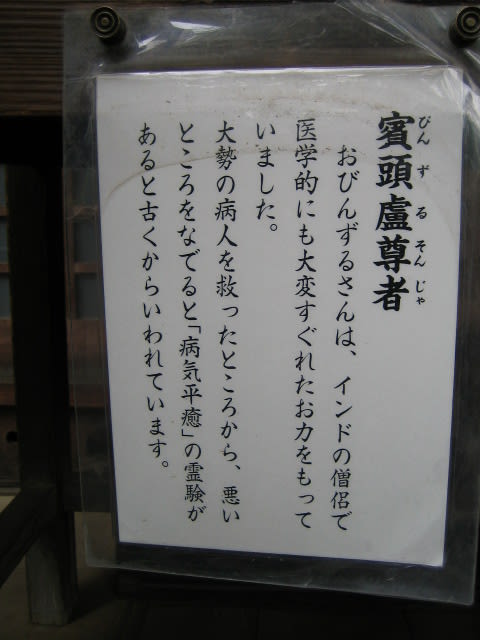 賓頭盧尊者
びんずるそんじゃ
おびんずるさんは、インドの僧侶で
医学的にも大変すぐれたお力をもって
いました。
大勢の病人を救ったところから、悪い
ところをなでると「病気平癒」の霊験が
あると古くからいわれています。